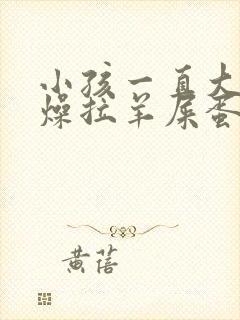 小孩一直大
燥拉羊屎蛋
黄蓓